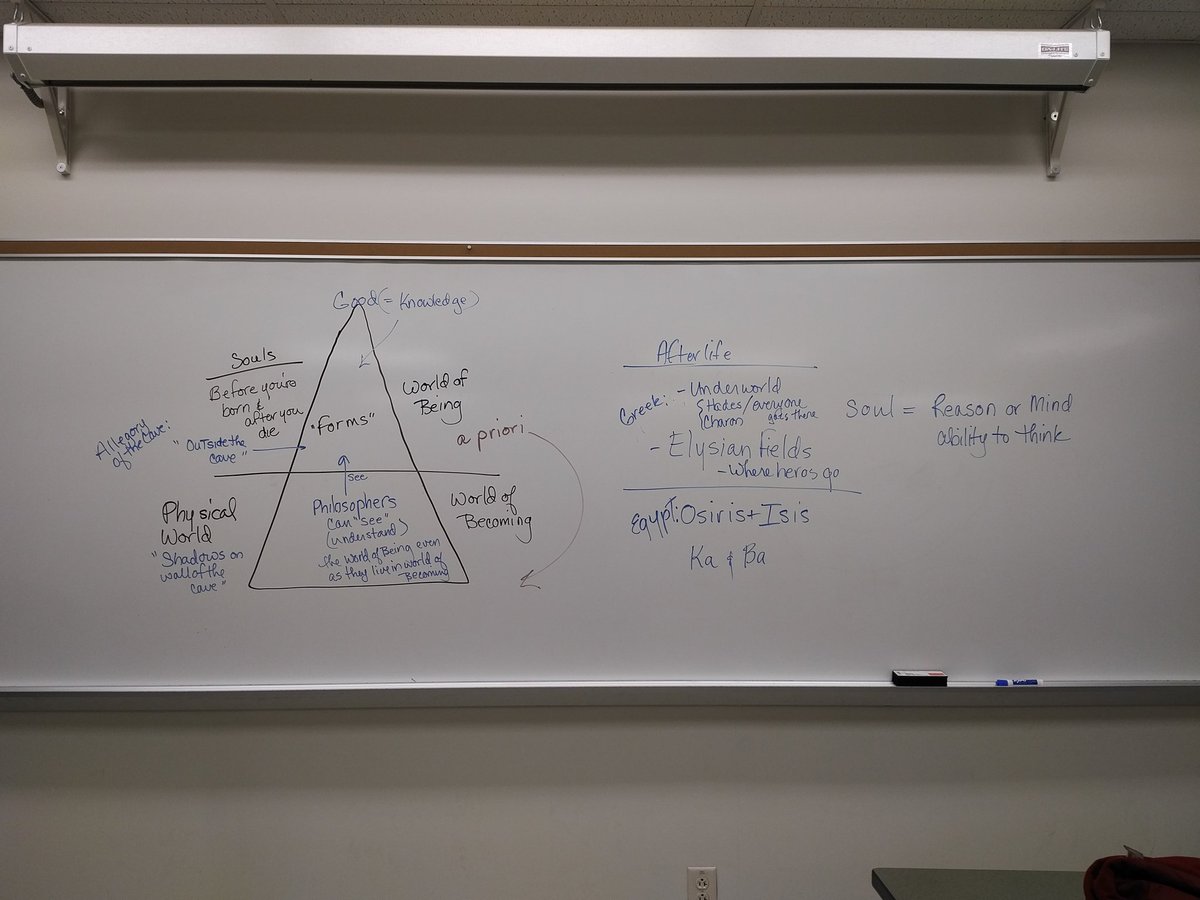 Good (= Knowledge)
Souls
Before you're
born &
after you
die
Allegory
of the Cave:
"Outside the
cave"
"Forms"
World of
Being
a priori
see
Physical
World
"Shadows on
wall of the
cave"
Philosophers
can "see"
(understand)
the world of Being even
as they live in world of
Becoming
World of
Becoming
Afterlife
Greek:
- Underworld
{ Hades / everyone
goes there
{ Charon
- Elysian Fields
- Where heros go
Egypt: Osiris + Isis
Ka & Ba
Soul = Reason or Mind
ability to think